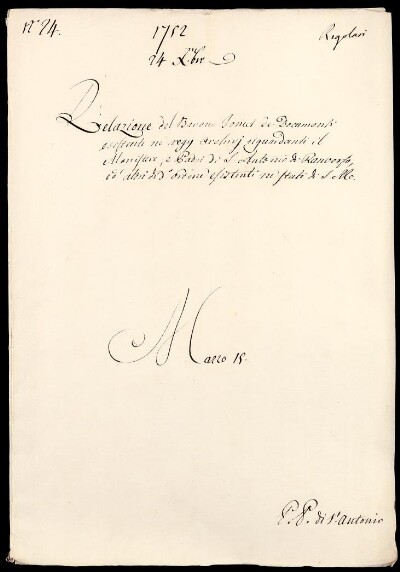 N.° 24.
1752
Regolari
24 Xbre
Relazione del Barone Foncet de Documenti
esistenti ne regy Archivj riguardanti il
Monistero, e Padri di S. Antonio di Ranverso,
ed altri di d.° ordine esistenti ne stati di S. M.
Mazzo 15.
P. P. di S.t Antonio